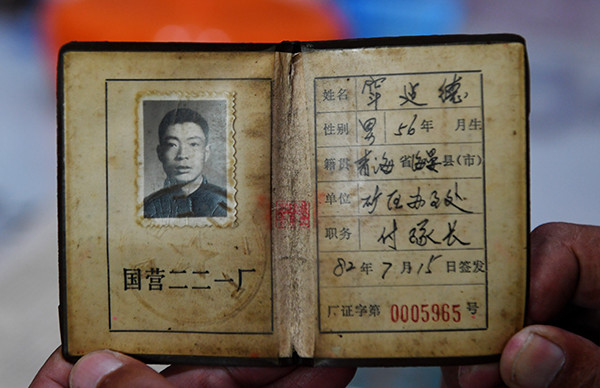 国营二二一厂
姓名 窜建德
性别 男 56年 月生
籍贯 青海省海晏县(市)
单位 矿区办事处
职务 付队长
82年7月15日签发
厂证字第 0005965 号